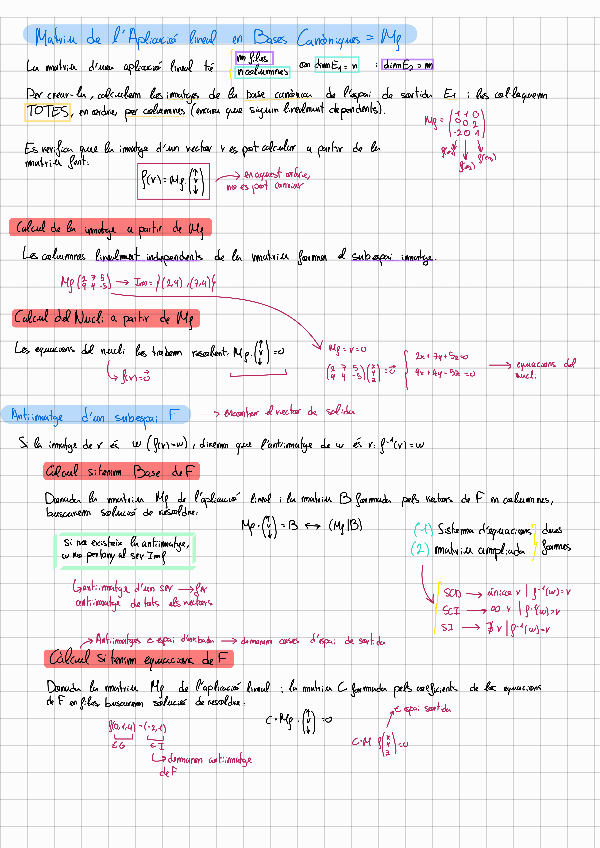 Matriu de l'Aplicació lineal en Bases Canòniques = Mf
La matriu d'una aplicació lineal té m files n columnes on dim E₁ = n i dim E₂ = m
Per crear-la, calculem les imatges de la base canònica de l'espai de sortida E₁ i les col·loquem
TOTES, en ordre, per columnes (encara que siguin linealment dependents).
Mf = (1 1 0
0 0 2
-2 0 1)
f(e₁) f(e₂) f(e₃)
Es verifica que la imatge d'un vector v es pot calcular a partir de la
matriu fent:
f(v) = Mf (v) → en aquest ordre,
no es pot canviar
Càlcul de la imatge a partir de Mf
Les columnes linealment independents de la matriu formen el subespai imatge.
Mf (2 7 5
4 4 -5) → Im = {(2,4), (7,4)}
Càlcul del Nucli a partir de Mf
Les equacions del nucli les trobem resolent: Mf · (v) = 0
↳ f(v) = 0
Mf = v = 0
(2 7 5
4 4 -5) (x y z) = 0
2x + 7y + 5z = 0
4x + 4y - 5z = 0
→ equacions del
nucli.
Antiimatge d'un subespai F → encontrar el vector de salida
Si la imatge de v és w (f(v)=w), direm que l'antiimatge de w és v: f⁻¹(v) = w
Càlcul si tenim Base de F
Donada la matriu Mf de l'aplicació lineal i la matriu B formada pels vectors de F en columnes,
buscarem solució de resoldre:
Mf · (v) = B ↔ (Mf|B)
(1) Sistema d'equacions
(2) matriu ampliada
dues
formes
Si no existeix la antiimatge,
w no pertany al ser Imf
↳ antiimatge d'un ser → fer
antiimatge de tots els vectors
SCD → única v | f⁻¹(w) = v
SCI → ∞ v | f⁻¹(w) = v
SI → ∄ v | f⁻¹(w) = v
→ Antiimatges espai d'arribada → demanen coses d'espai de sortida
Càlcul si tenim equacions de F
Donada la matriu Mf de l'aplicació lineal i la matriu C formada pels coeficients de les equacions
de F en files buscarem solució de resoldre:
C · Mf · (v) = 0
espai sortida
C · M f (x y z) = 0
f(0,1,4) = (-2,1)
∈ G ∈ I
↳ demanen antiimatge
de F